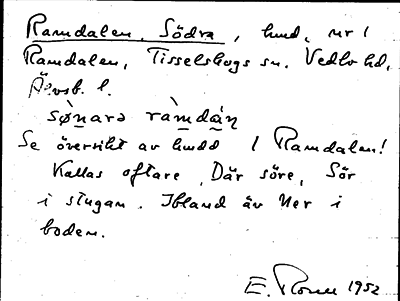 Ramdalen, Södra, hmd, nr 1
Ramdalen, Tisselskogs sn. Vedbo hd,
Älvsb. l.
sø̀narə ràmdán
Se översikt av hmdd / Ramdalen!
Kallas oftare Där söre, Sör
i stugan. Ibland äv Ner i
boden.
E. 1952